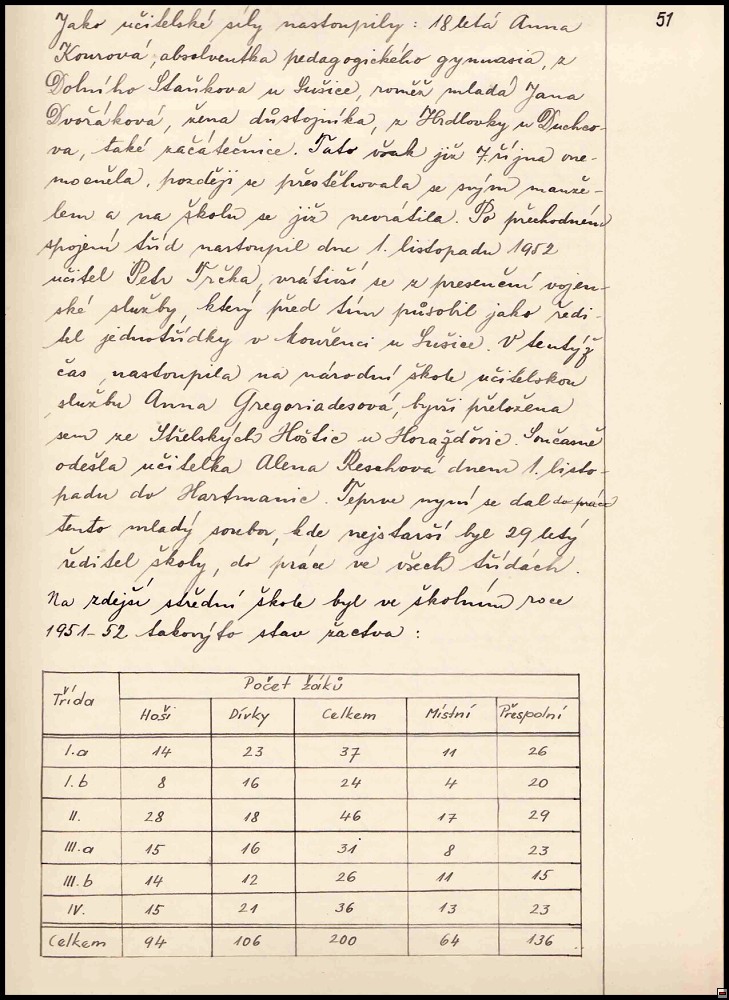 51
Jako učitelské síly nastoupily: 18letá Anna
Kourová, absolventka pedagogického gymnasia, z
Dolního Staňkova u Sušice, rovněž mladá Jana
Dvořáková, žena důstojníka, z Hrdlovky u Duchco-
va, také začátečnice. Tato však již 7. října one-
mocněla, později se přestěhovala se svým manže-
lem a na školu se již nevrátila. Po přechodném
spojení tříd nastoupil dne 1. listopadu 1952
učitel Petr Trčka, vrátivší se z presenční vojen-
ské služby, který před tím působil jako ředi-
tel jednotřídky v Mouřenci u Sušice. V tentýž
čas nastoupila na národní škole učitelskou
službu Anna Gregoriadesová, byvši přeložena
sem ze Střelských Hoštic u Horažďovic. Současně
odešla učitelka Alena Reschová dnem 1. listo-
padu do Hartmanic. Teprve nyní se dal do práce
tento mladý soubor, kde nejstarší byl 29 letý
ředitel školy, do práce ve všech třídách.
Na zdejší střední škole byl ve školním roce
1951-52 takovýto stav žactva:
Třída Počet žáků
Hoši Dívky Celkem Místní Přespolní
I.a 14 23 37 11 26
I.b 8 16 24 4 20
II. 28 18 46 17 29
III.a 15 16 31 8 23
III.b 14 12 26 11 15
IV. 15 21 36 13 23
Celkem 94 106 200 64 136